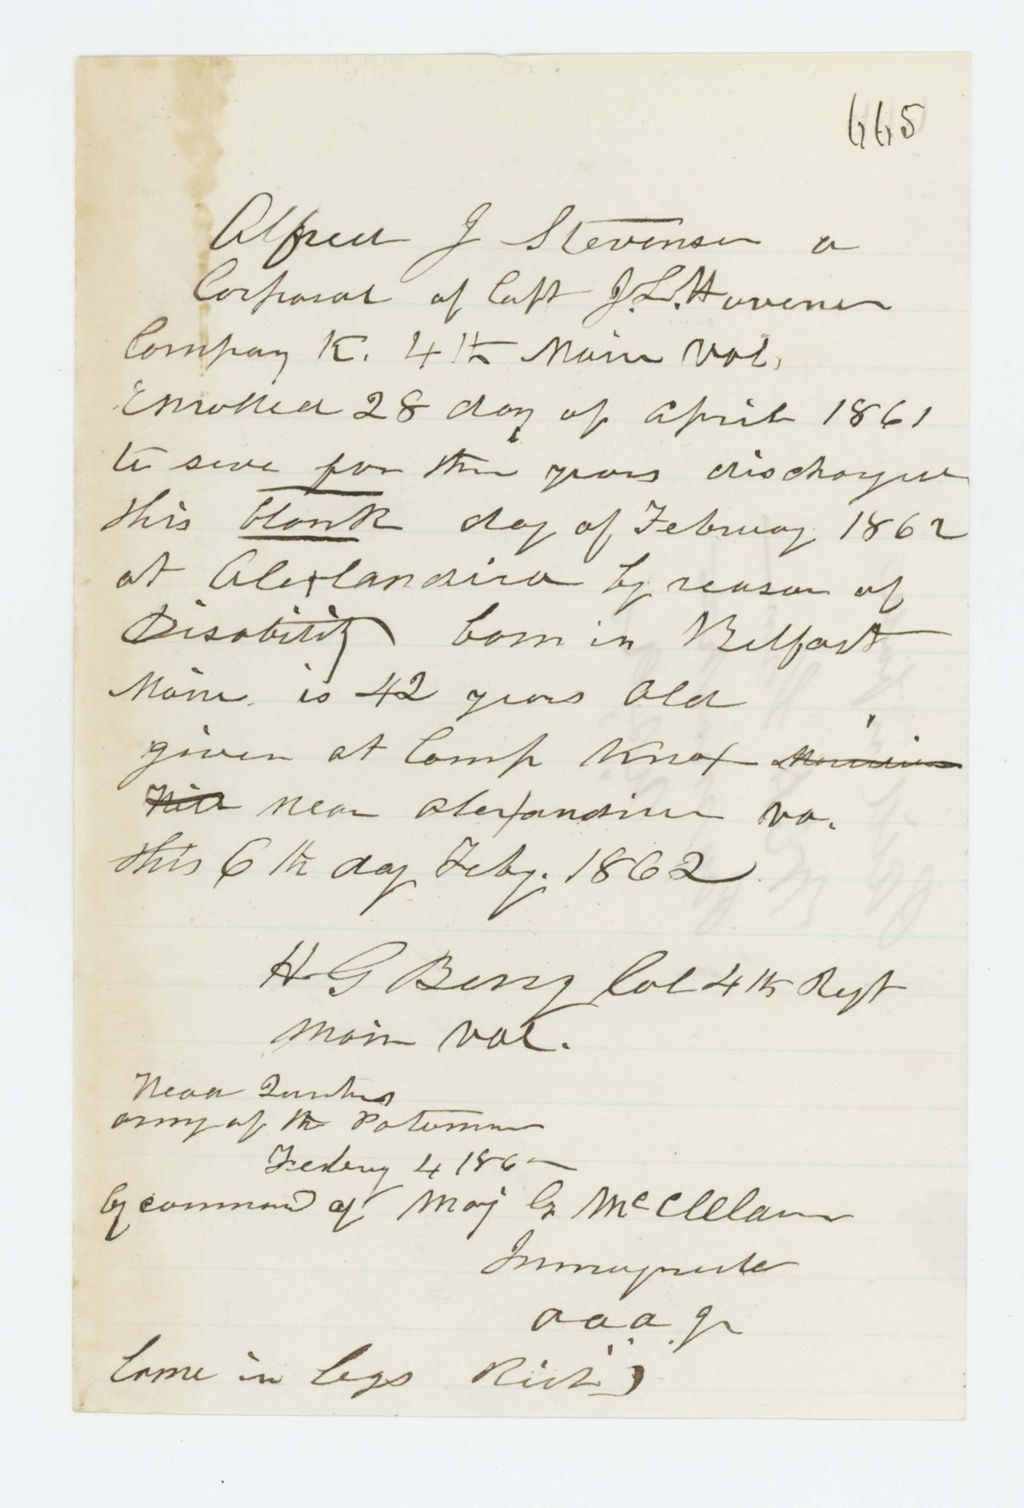 665
Alfred J Stevenson a
Corporal of Capt J.L. Havener
Company K. 4th Maine Vol.
Enrolled 28 day of April 1861
to serve for three years discharged
this blank day of February 1862
at Alexlandira by reason of
Disability born in Belfast
Maine. is 42 years Old
given at Camp Knox
Hill near Alexandira va.
this 6th day Feby. 1862
H G Berry Col 4th Regt
Main Vol.
Head Quarters
army of the Potomac
Febury 4 1862
by command of Maj G McClelann
a.a.a. g
Lame in legs